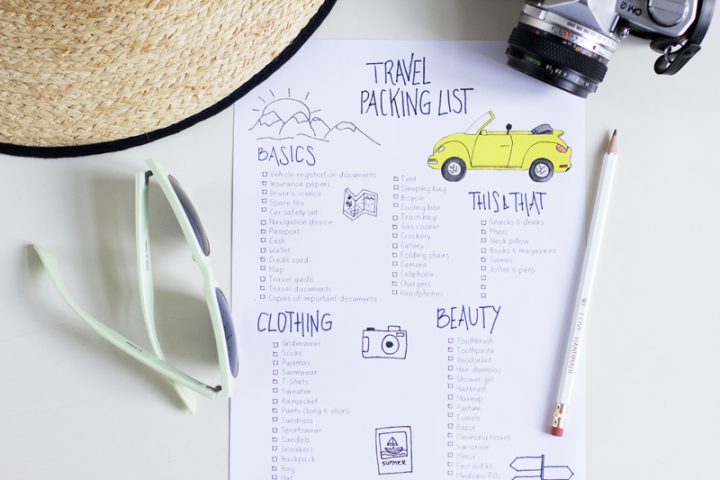 TRAVEL
PACKING LIST
BASICS
Vehicle registration documents
Insurance papers
Driver's licence
Spare tire
Car safety set
Navigation device
Passport
Cash
Wallet
Credit card
Map
Travel guide
Travel documents
Copies of important documents
Tent
Sleeping bag
Bicycle
Cooling box
Trash bag
Gas cooker
Crockery
Cutlery
Folding chairs
Camera
Cellphone
Chargers
Headphones
THIS & THAT
Snacks & drinks
Music
Neck pillow
Books & magazines
Games
Jotter & pens
CLOTHING
Underwear
Socks
Pyjamas
Swimwear
T-Shirts
Sweater
Rainjacket
Pants (long & short)
Sundress
Sportswear
Sandals
Sneakers
Backpack
Bag
Hat
SUMMER
BEAUTY
Toothbrush
Toothpaste
Deodorant
Hair shampoo
Shower gel
Hairbrush
Makeup
Parfum
Towels
Razor
Cleansing tissues
Sunscreen
Mirror
First aid kit
Medicine/Pills
WE LOVE HANDMADE
OM-2